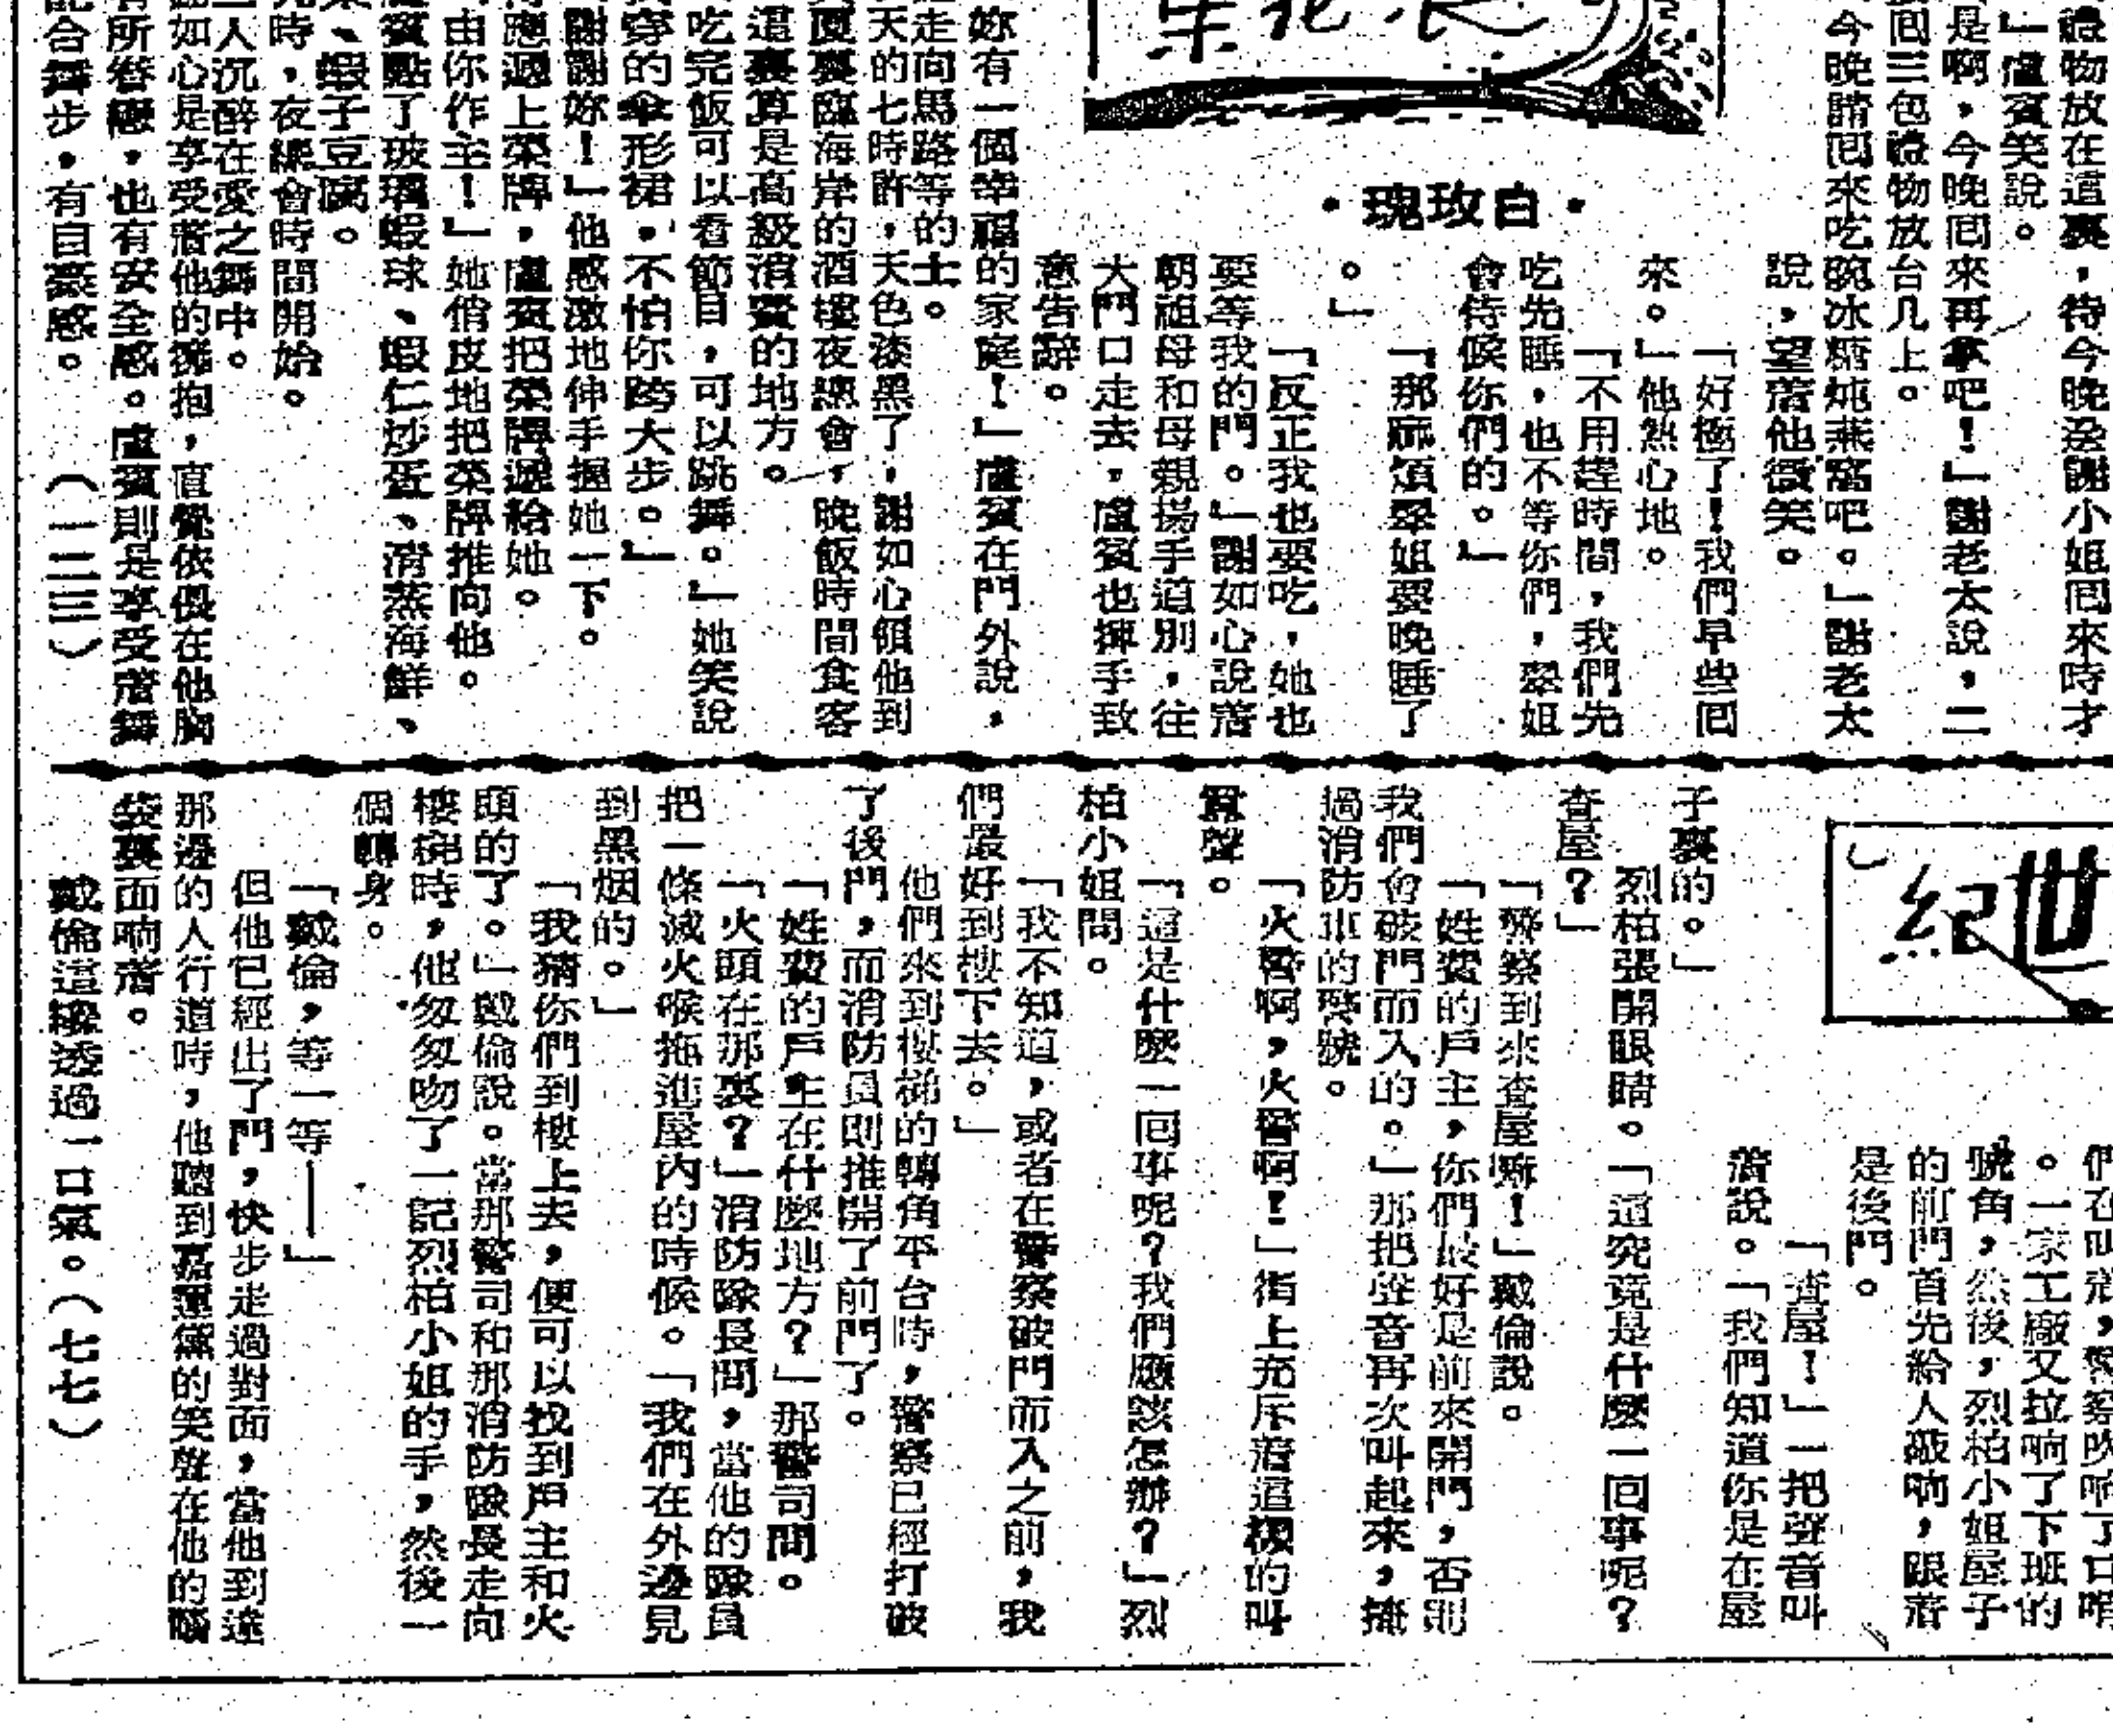 禮物放在這裏，待今晚送謝小姐囘來時才
」盧賓笑說。
是啊，今晚囘來再拿吧！」謝老太說，二
囘三包禮物放台几上。
今晚請囘來吃碗冰糖炖燕窩吧。」謝老太
說，望着他微笑。
「好極了！我們早些囘
來。」他熱心地。
「不用趕時間，我們先
吃先睡，也不等你們，翠姐
會侍候你們的。」
「那麻煩翠姐要晚睡了
。」
「反正我也要吃，她也
要等我的門。」謝如心說着
朝祖母和母親揚手道別，往
大門口走去，盧賓也揮手致
意告辭。
•白玫瑰•
妳有一個幸福的家庭！」盧賓在門外說，
走向馬路等的士。
天的七時許，天色漆黑了，謝如心領他到
厦裏臨海岸的酒樓夜總會，晚飯時間食客
這裏算是高級消費的地方。
吃完飯可以看節目，可以跳舞。」她笑說
穿的傘形裙，不怕你跨大步。」
謝謝妳！」他感激地伸手握她一下。
應遞上菜牌，盧賓把菜牌遞給她。
由你作主！」她俏皮地把菜牌推向他。
賓點了玻璃蝦球、蝦仁炒蛋、清蒸海鮮、
、蝦子豆腐。
時，夜總會時間開始。
人沉醉在愛之舞中。
如心是享受着他的擁抱，直覺依偎在他胸
所答應，也有安全感。盧賓則是享受着舞
配合舞步，有自豪感。（一二三）
世紀
們在叫着，警察吹响了口哨
。一家工廠又拉响了下班的
號角，然後，烈柏小姐屋子
的前門首先給人敲响，跟着
是後門。
「查屋！」一把聲音叫
着說。「我們知道你是在屋
子裏的。」
烈柏張開眼睛。「這究竟是什麼一回事呢？
查屋？」
「警察到來查屋嘛！」戴倫說。
「姓裴的戶主，你們最好是前來開門，否則
我們會破門而入的。」那把聲音再次叫起來，掩
過消防車的號。
「火警啊，火警啊！」街上充斥着這樣的叫
聲。
「這是什麼一回事呢？我們應該怎辦？」烈
柏小姐問。
「我不知道，或者在警察破門而入之前，我
們最好到樓下去。」
他們來到樓梯的轉角平台時，警察已經打破
了後門，而消防員則推開了前門了。
「姓裴的戶主在什麼地方？」那警司問。
「火頭在那裏？」消防隊長問，當他的隊員
把一條滅火喉拖進屋內的時候。「我們在外邊見
到黑烟的。」
「我猜你們到樓上去，便可以找到戶主和火
頭的了。」戴倫說。當那警司和那消防隊長走向
樓梯時，他匆匆吻了一記烈柏小姐的手，然後一
個轉身。
「戴倫，等一等——」
但他已經出了門，快步走過對面，當他到達
那邊的人行道時，他聽到嘉運黛的笑聲在他的腦
袋裏面响着。
戴倫這纔透過一口氣。（七七）